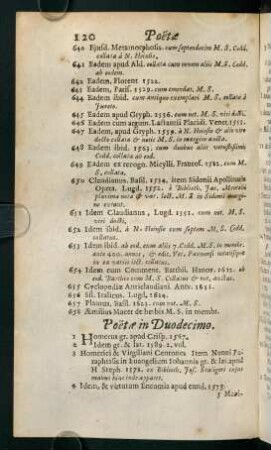 120 Poëtæ
640 Ejusd. Metamorphosis. cum septendecim M. S. Codd.
collata à N. Heinsio.
641 Eadem apud Ald. collata cum novem aliis M. S. Cod.
ab eodem.
642 Eadem. Florent 1522.
643 Eadem, Paris. 1529. cum emendat. M. S.
644 Eadem ibid. cum antiquo exemplari M. S. collata à
645 Eadem apud Gryph. 1556. cum not. M. S. viri docti.
646 Eadem cum argum. Lactantii Placidi. Venet.
647 Eadem, apud Gryph. 1559. à N. Heinsio & alio viro
docto collata & notis M. S. margini additis.
648 Eadem ibid. 1563. cum duobus aliis vetustissimis
Codd. collata ab eod.
649 Eadem ex recogn. Micylli. Francof. 1582. cum M.
S. collata.
650 Claudianus. Basil. 1534. item Sidonii Apollinaris
Opera. Lugd. 1552. à Biblioth. Jac.
plurima nota & var. lect. M. S. in Sidonii margine
651 Idem Claudianus, Lugd. 1551. cum not. M. S. viri
docti.
652 Idem ibid. à N. Heinsio cum septem M. S. Codd.
collatus.
653 Idem ibid. ab eod. cum aliis 7. Codd. M. S. in membr.
ante 400. annos, & alio,
in ea variis lect. collatus.
654 Idem cum Comment. Barthii. Hanov. 1612. ab
eod. Barthio cum M. S. Codd. collatus & emendatus.
655 Cyclopædia Anticlaudiani. Antv. 1611.
656 Sil. Italicus. Lugd.
657 Plautus. Basil. cum not. M. S.
658 Æmilius Macer de herbis M. S. in membr.
Poëtæ in Duodecimo.
1 Homerus gr. apud Crisp. 1567.
2 Idem gr. & lat. 1589. 2. vol.
3 Homerici & Virgiliani Centones Item Nonni Paraphrasis
in Euangelium Iohannis gr. & lat. apud
H. Steph. 1578. ex Biblioth.
4 Idem, & virtutum Encomia apud eund. 1573.